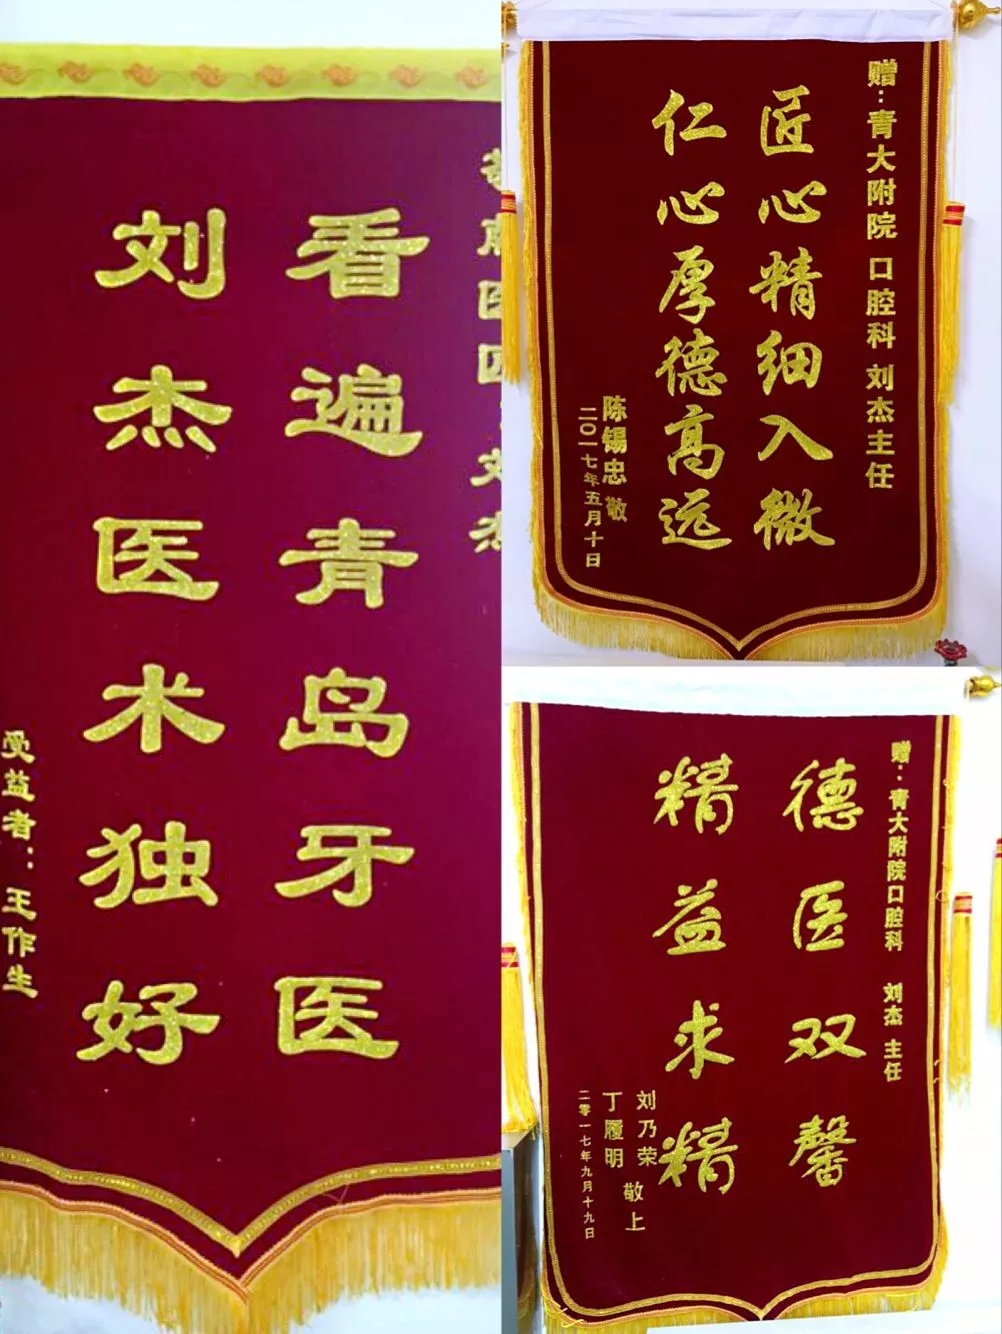 看遍青岛牙医
刘杰医术独好
受益者：王作生
赠：青大附院 口腔科 刘杰主任
匠心精细入微
仁心厚德高远
陈锡忠 敬
二〇一七年五月十日
赠：青大附院口腔科 刘杰 主任
德医双馨
精益求精
刘乃荣 敬上
丁履明
二零一七年九月十九日